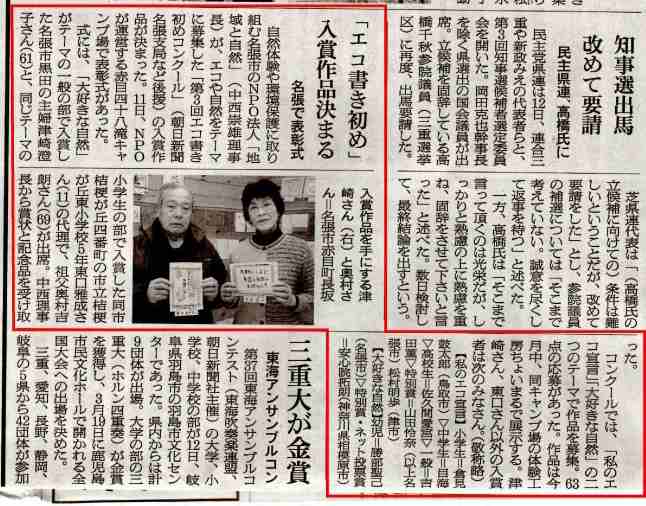 知事選出馬
改めて要請
民主県連、高橋氏に
民主党県連は12日、連合三
重や新政みえの代表者らと、
第3回知事選候補者選定委員
会を開いた。岡田克也幹事長
を除く県選出の国会議員が出
席。立候補を固辞している高
橋千秋参院議員（三重選挙
区）に再度、出馬要請した。
芝県連代表は「（高橋氏の
立候補に向けての）条件は難
しいということだが、改めて
要請をした」とし、参院議員
の補選については「そこまで
考えていない。誠意を尽くし
て返事を待つ」と述べた。
一方、高橋氏は「そこまで
言って頂くのは光栄だが、し
っかりと熟慮の上に熟慮を重
ね、固辞をさせて下さいと言
った」と述べた。数日検討し
て、最終結論を出すという。
「エコ書き初め」
入賞作品決まる
名張で表彰式
自然体験や環境保護に取り
組む名張市のNPO法人「地
域と自然」（中西崇雄理事
長）が、エコや自然をテーマ
に募集した「第3回エコ書き
初めコンクール」（朝日新聞
名張支局など後援）の入賞作
品が決まった。11日、NPO
が運営する赤目四十八滝キャ
ンプ場で表彰式があった。
式には、「大好きな自然」
がテーマの一般の部で入賞し
た名張市黒田の主婦津崎澄
子さん（61）と、同じテーマの
小学生の部で入賞した同市
桔梗が丘四番町の市立桔梗
が丘東小学校5年東口雅成さ
ん（11）の代理で、祖父奥村吉
朗さん（69）が出席。中西理事
長から賞状と記念品を受け取
入賞作品を手にする津
崎さん（右）と奥村さ
ん＝名張市赤目町長坂
った。
コンクールでは、「私のエ
コ宣言」「大好きな自然」の二
つのテーマで作品を募集。63
点の応募があった。作品は今
月中、同キャンプ場の体験工
房ちょいまるで展示する。津
崎さん、東口さん以外の入賞
者は次のみなさん。（敬称略）
【私のエコ宣言】小学生＝倉見
鼓太郎（鳥取市）▽中学生＝目海
▽高校生＝佐久間愛宮▽一般＝吉
田薫▽特別賞＝山田怜奈（以上名
張市）松村明歩（津市）
【大好きな自然】幼児＝勝部聖己
（名張市）▽特別賞・ネット投票賞
＝安心院拓朗（神奈川県相模原市）
三重大が金賞
東海アンサンブルコン
第37回東海アンサンブルコ
ンテスト（東海吹奏楽連盟、
朝日新聞社主催）の大学、小
学校、中学校の部が12日、岐
阜県羽島市の羽島市文化セン
ターであった。県内からは計
9団体が出場。大学の部の三
重大（ホルン四重奏）が金賞
を獲得し、3月19日に鹿児島
市民文化ホールで開かれる全
国大会への出場を決めた。
三重、愛知、長野、静岡、
岐阜の5県から42団体が参加